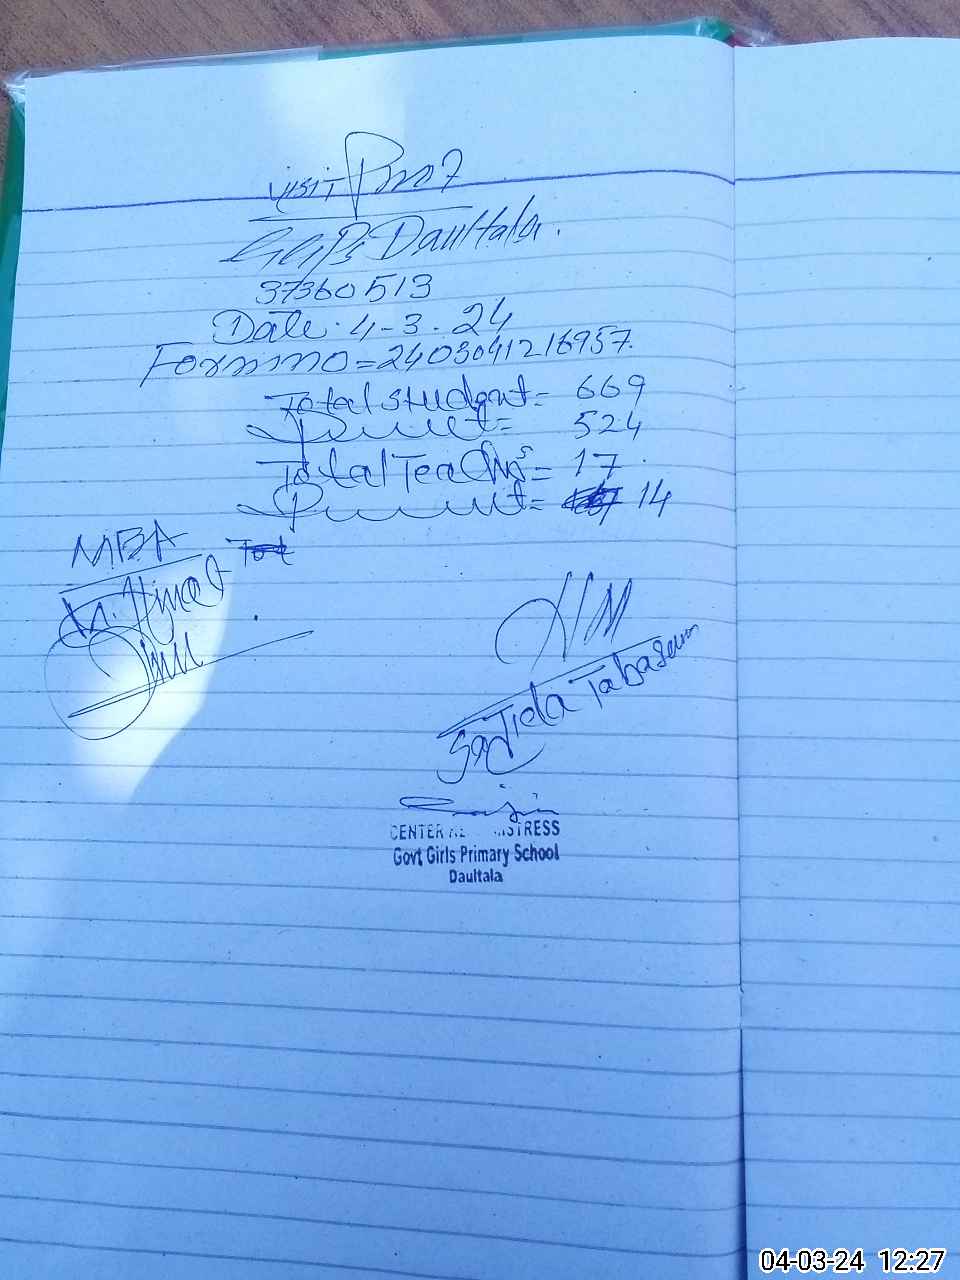 VISIT
GGPS Daultala.
37360513
Date. 4-3.24
Form no = 2403041216957.
Total student = 669
Present = 524
Total Teachers = 17
Present = 14
MBA
HM
Sajida Tabasum
CENTER
Govt Girls Primary School
Daultala
04-03-24 12:27